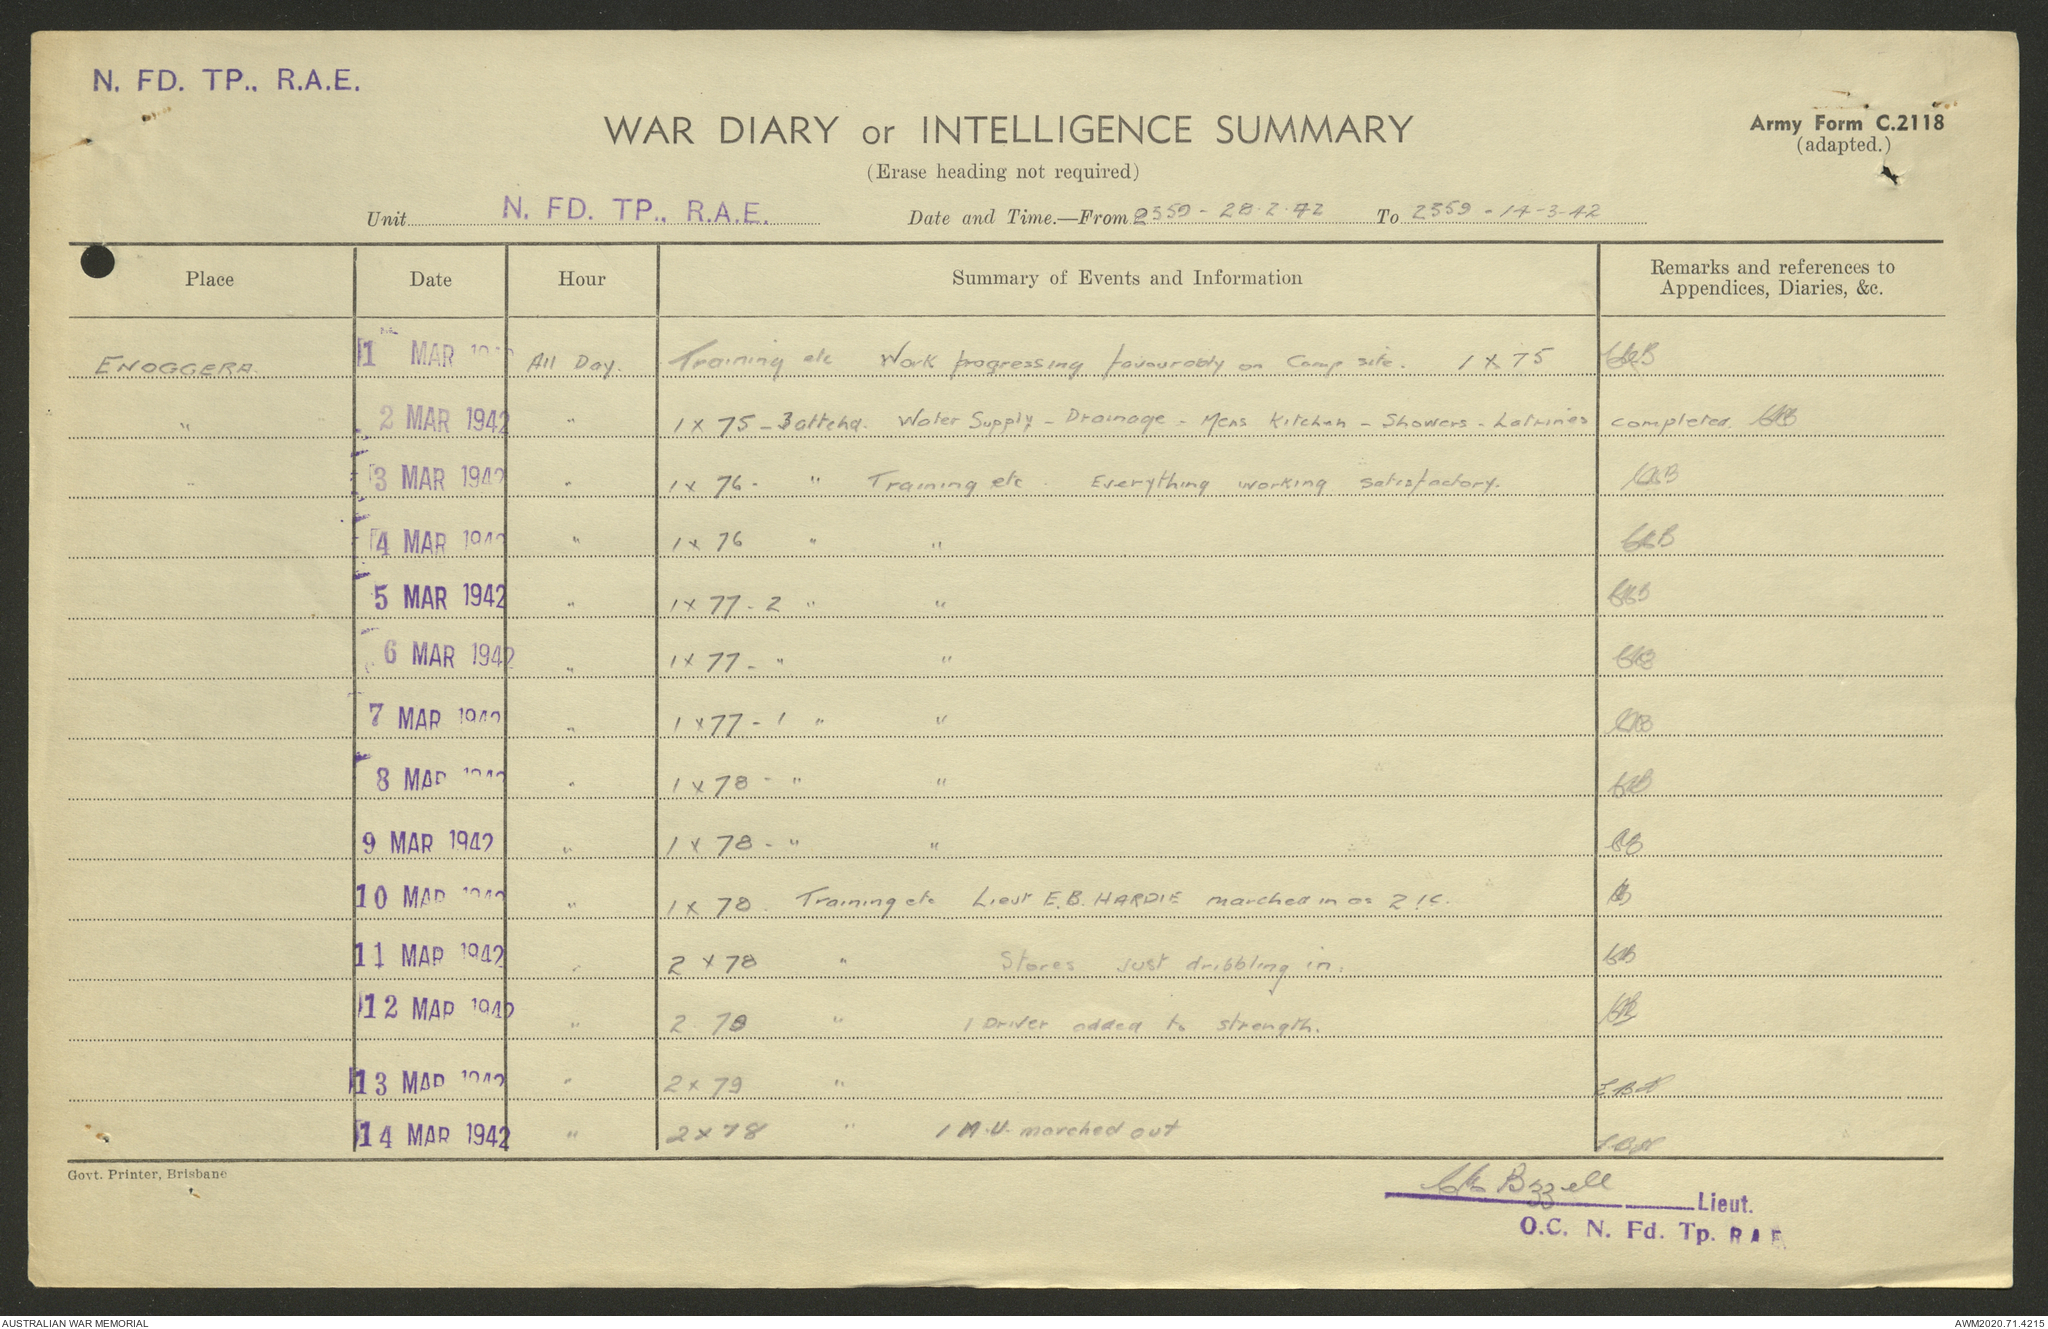 N. FD. TP., R.A.E.
WAR DIARY or INTELLIGENCE SUMMARY
Army Form C.2118
(adapted.)
(Erase heading not required)
Unit N. FD. TP., R.A.E. Date and Time.—From 2359 - 28.2.42 To 2359 - 14-3-42
Place Date Hour Summary of Events and Information Remarks and references to
Appendices, Diaries, &c.
ENOGGERA. 1 MAR All Day. Training etc Work progressing favourably on Camp site. 1 x 75
" 2 MAR 1942 " 1 x 75 - 3 attchd. Water Supply - Drainage - Mens Kitchen - Showers - Latrines completed.
" 3 MAR 1942 " 1 x 76 - " Training etc. Everything working satisfactory.
4 MAR 1942 " 1 x 76 " "
5 MAR 1942 " 1 x 77 - 2 " "
6 MAR 1942 " 1 x 77 - " "
7 MAR 1942 " 1 x 77 - 1 " "
8 MAR 1942 " 1 x 78 - " "
9 MAR 1942 " 1 x 78 - " "
10 MAR 1942 " 1 x 78. Training etc Lieut E.B. HARDIE marched in as 2 I.C.
11 MAR 1942 " 2 x 78 " Stores just dribbling in.
12 MAR 1942 " 2 78 " 1 Driver added to strength.
13 MAR 1942 " 2 x 79 " E.B.H
14 MAR 1942 " 2 x 78 " 1 marched out E.B.H
Govt. Printer, Brisbane
Bizzell Lieut.
O.C. N. Fd. Tp. R A E.
AUSTRALIAN WAR MEMORIAL
AWM2020.71.4215